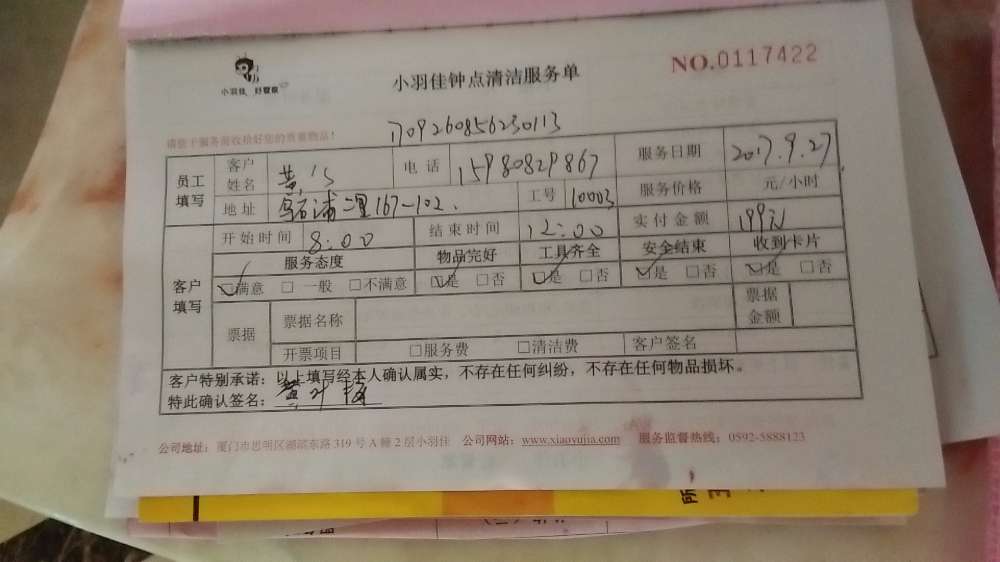 小羽佳 好管家
小羽佳钟点清洁服务单
NO.0117422
1709260856230113
请您于服务前收拾好您的贵重物品！
员工填写 客户姓名 黄 电话 15980829867 服务日期 2017.9.27
地址 乌石浦二里167-102. 工号 10003 服务价格 元/小时
客户填写 开始时间 8:00 结束时间 12:00 实付金额 199元
服务态度 物品完好 工具齐全 安全结束 收到卡片
☑满意 □一般 □不满意 ☑是 □否 ☑是 □否 ☑是 □否 ☑是 □否
票据 票据名称 票据金额
开票项目 □服务费 □清洁费 客户签名
客户特别承诺：以上填写经本人确认属实，不存在任何纠纷，不存在任何物品损坏。
特此确认签名：黄
公司地址：厦门市思明区湖滨东路319号A幢2层小羽佳 公司网站：www.xiaoyujia.com 服务监督热线：0592-5888123